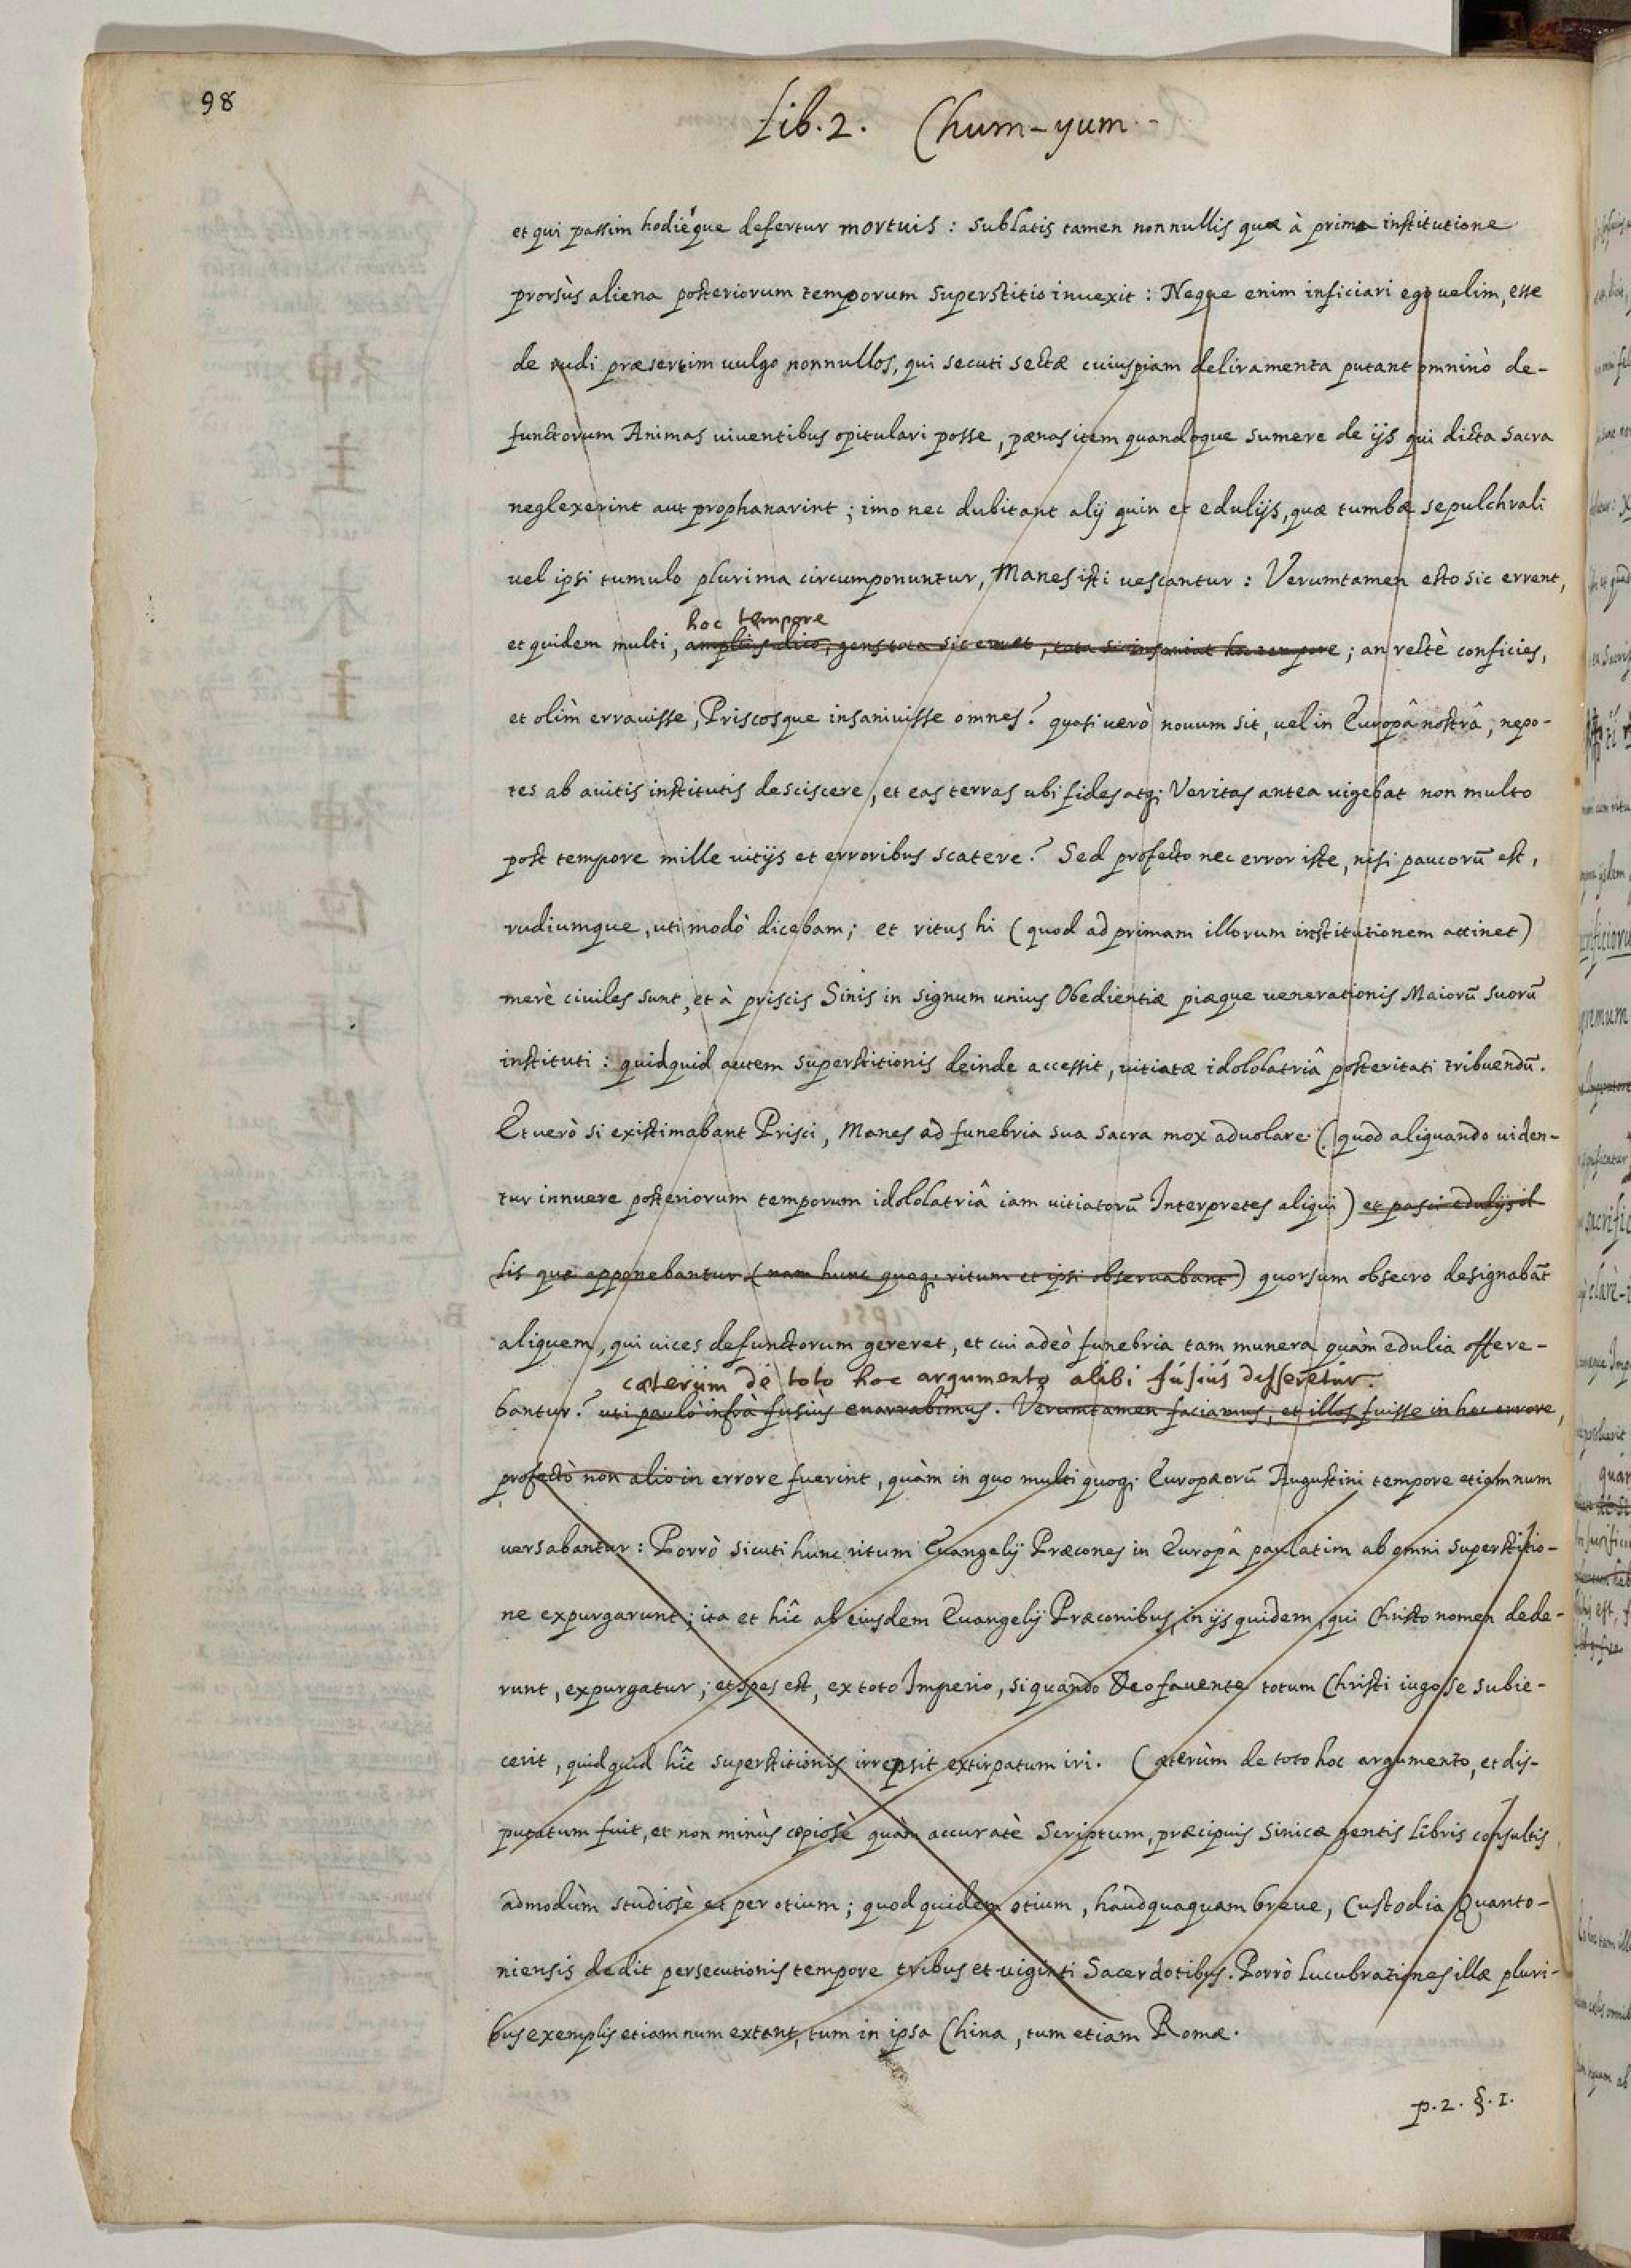 98
Lib. 2. Chum-yum
et qui passim hodiéque defertur mortuis : sublatis tamen nonnullis quæ à prima institutione
prorsùs aliena posteriorum temporum superstitio inuexit : Neque enim inficiari ego uelim, esse
de rudi præsertim uulgo nonnullos, qui secuti sectæ cuiuspiam deliramenta putant omninò de-
functorum Animas uiuentibus opitulari posse, pœnas item quandoque sumere de ijs qui dicta sacra
neglexerint aut prophanarint ; imo nec dubitant alij quin et edulijs, quæ tumbæ sepulchrali
uel ipsi tumulo plurima circumponuntur, Manes isti uescantur : Verumtamen esto sic errent,
hoc tempore
et quidem multi, amplius dico, gens tota sic erret, tota sic insaniat hoc tempore ; an rectè conficies,
et olìm errauisse, Priscosque insaniuisse omnes ? quasi uerò nouum sit, uel in Europâ nostrâ, nepo-
tes ab auitis institutis desciscere, et eas terras ubi fides atq; Veritas antea uigebat non multo
post tempore mille uitijs et erroribus scatere ? Sed profecto nec error iste, nisi paucorū est,
rudiumque, uti modò dicebam; et ritus hi (quod ad primam illorum institutionem attinet)
merè ciuiles sunt, et à priscis Sinis in signum unius Obedientiæ piæque uenerationis Maiorū suorū
instituti : quidquid autem superstitionis deinde accessit, uitiatæ idololatriâ posteritati tribuendū.
Et uerò si existimabant Prisci, Manes ad funebria sua sacra mox aduolare (quod aliquando uiden-
tur innuere posteriorum temporum idololatriâ iam uitiatorū Interpretes aliqui) et pasci edulijs il-
lis quæ apponebantur (nam hunc quoq; ritum et ipsi obseruabant) quorsum obsecro designabāt
aliquem, qui uices defunctorum gereret, et cui adeò funebria tam munera quàm edulia offere-
cæterùm de toto hoc argumento alibi fusiùs disseretur.
bantur ? uti paulò infrà fusiùs enarrabimus. Verumtamen faciamus, et illos fuisse in hoc errore,
profectò non alio in errore fuerint, quàm in quo multi quoq; Europæorū Augustini tempore etiamnum
uersabantur : Porrò sicuti hunc ritum Euangelij Præcones in Europâ paulatim ab omni superstitio-
ne expurgarunt ; ita et hîc ab eiusdem Euangelij Præconibus, in ijs quidem, qui Christo nomen dede-
runt, expurgatur ; et spes est, ex toto Imperio, si quando Deo fauente totum Christi iugo se subie-
cerit, quidquid hîc superstitionis irrepsit extirpatum iri. Cæterùm de toto hoc argumento, et dis-
putatum fuit, et non minùs copiosè quàm accuratè scriptum, præcipuis Sinicæ gentis libris consultis
admodùm studiosè et per otium ; quod quidem otium, haudquaquam breue, Custodia Quanto-
niensis dedit persecutionis tempore tribus et uiginti Sacerdotibus. Porrò lucubrationes illæ pluri-
bus exemplis etiamnum extant, tum in ipsa China, tum etiam Romæ.
p. 2. §. 1.